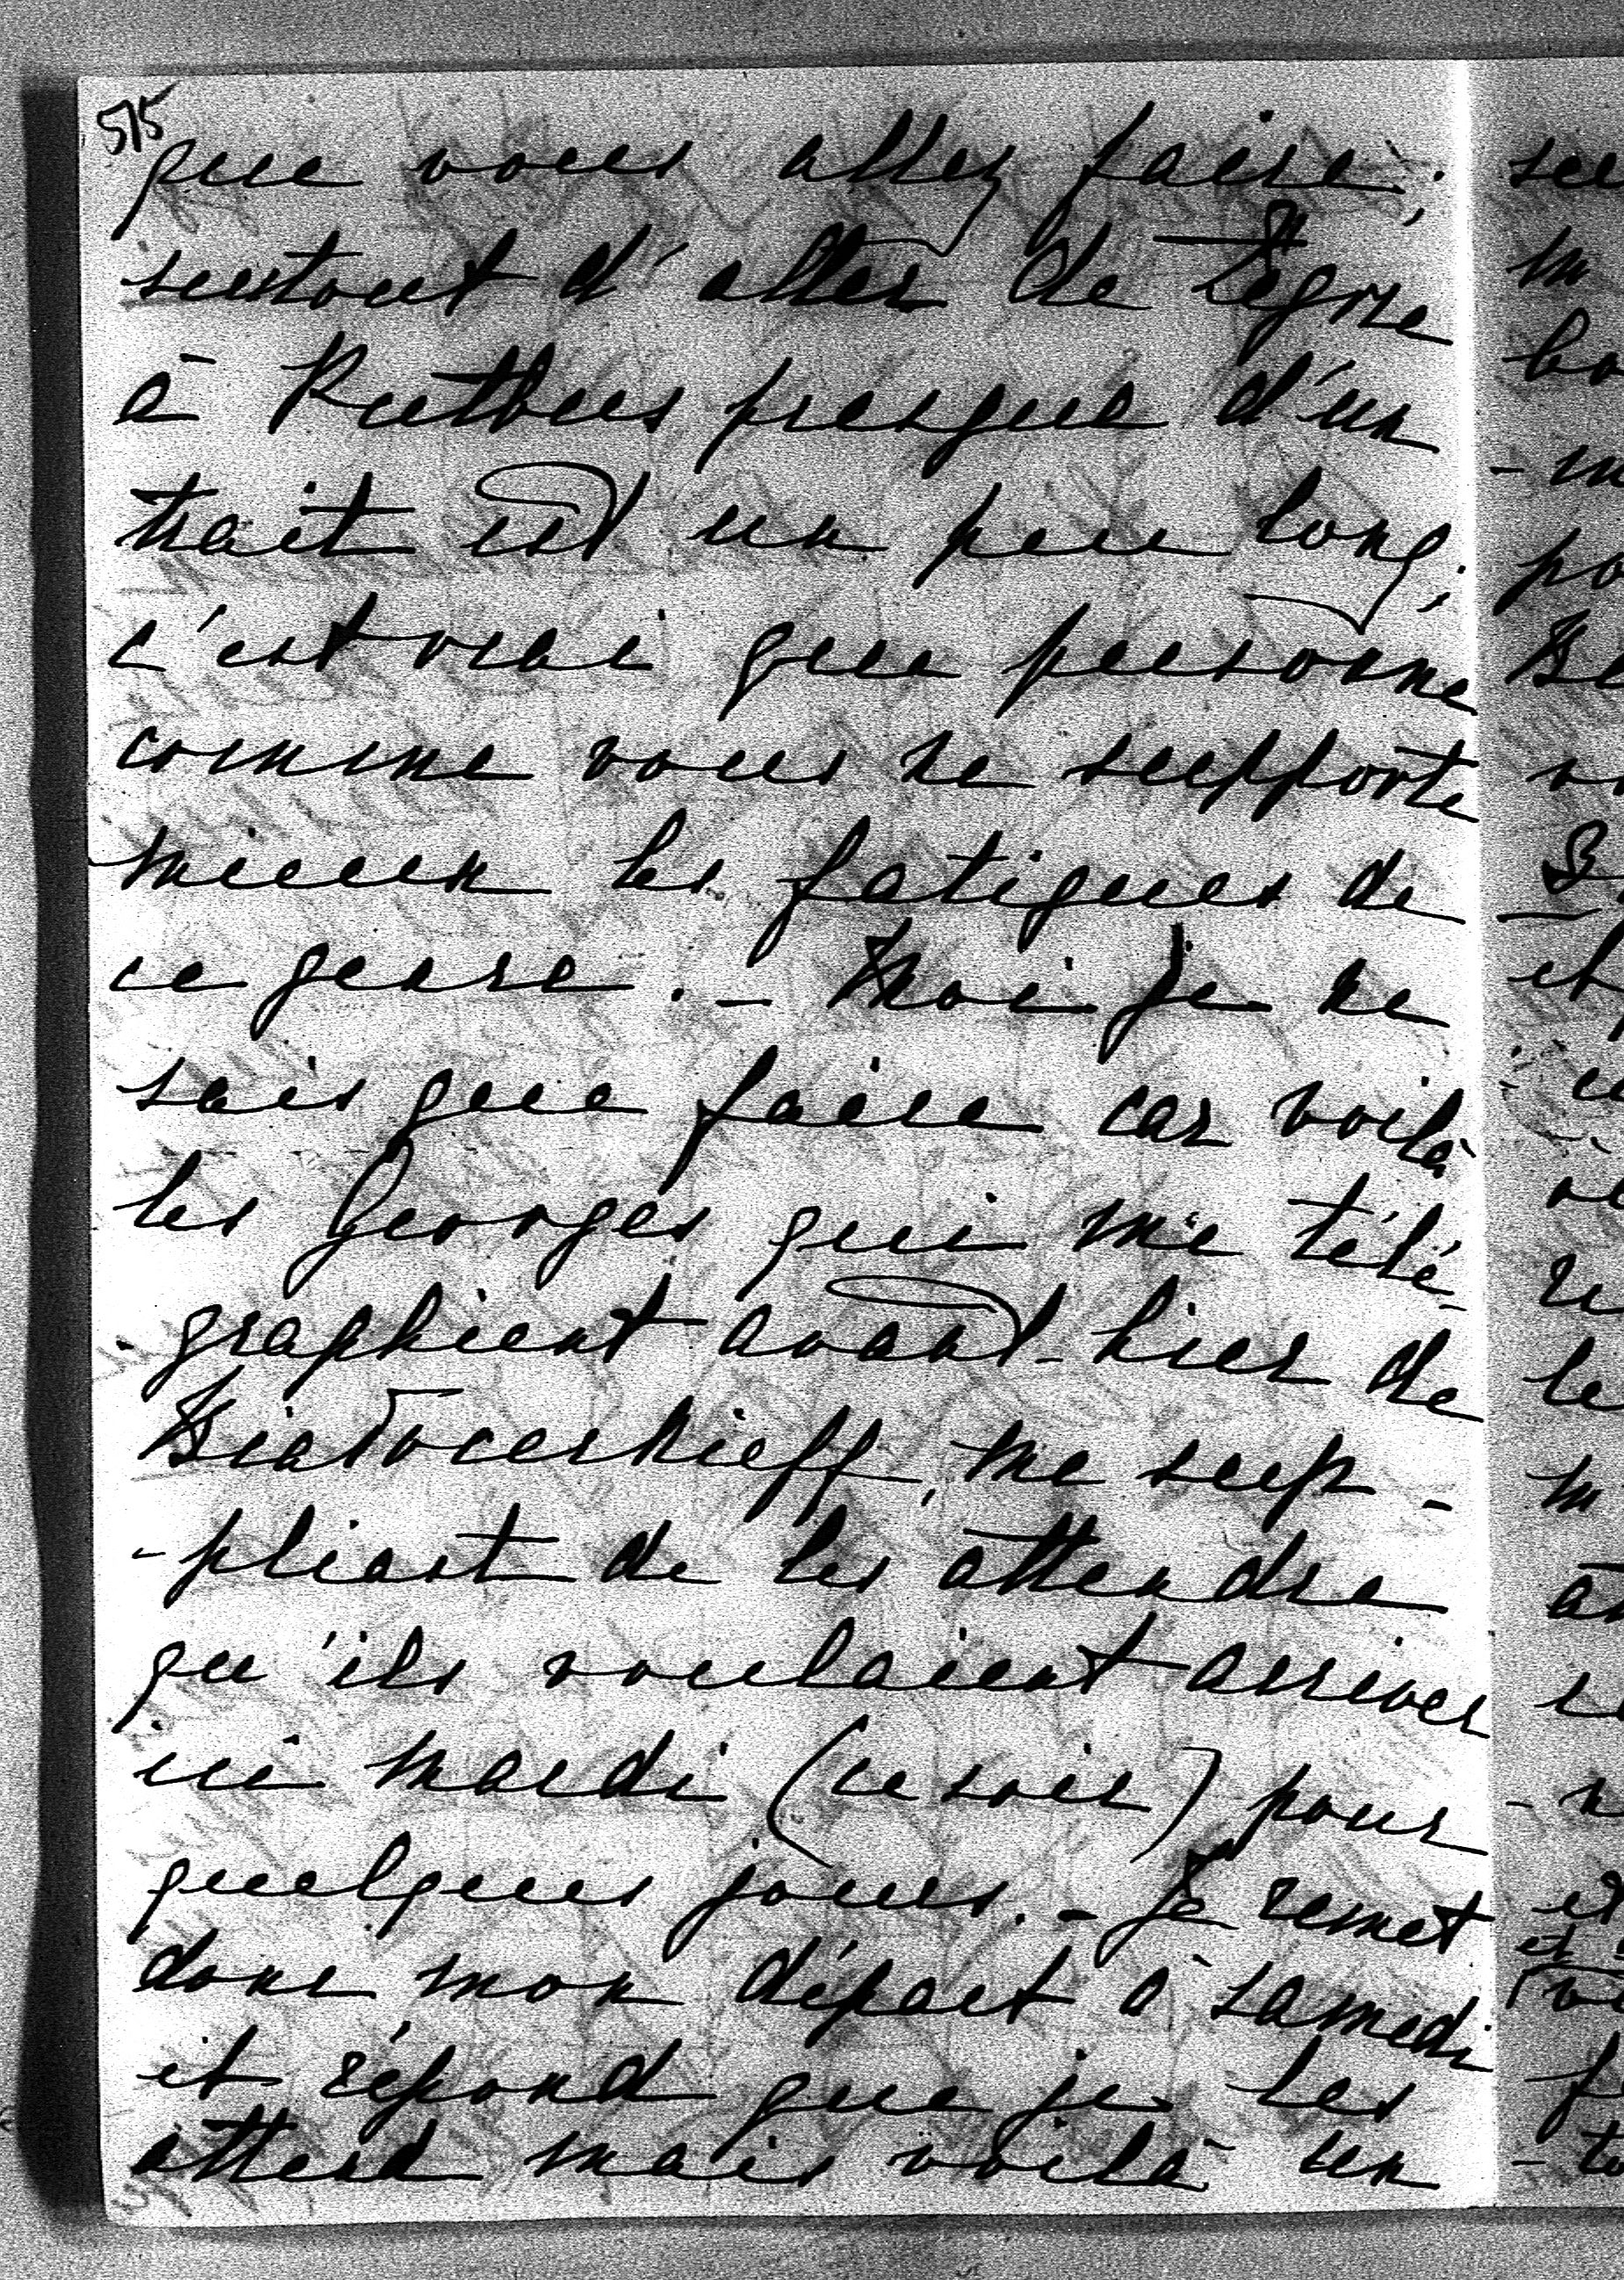 515
que vous allez faire;
surtout d'aller de Tégre
à Ruthous presque d'un
trait est un peu long;
c'est vrai que personne
comme vous ne supporte
mieux les fatigues de
ce genre. - Moi je ne
sais que faire car voilà
les Georges qui me télé-
-graphient avant-hier de
me sup-
-pliant de les attendre
qu'ils voulaient arriver
ici mardi (ce soir) pour
quelques jours. - Je remet
donc mon départ à samedi
et répond que je les
attend mais voilà un